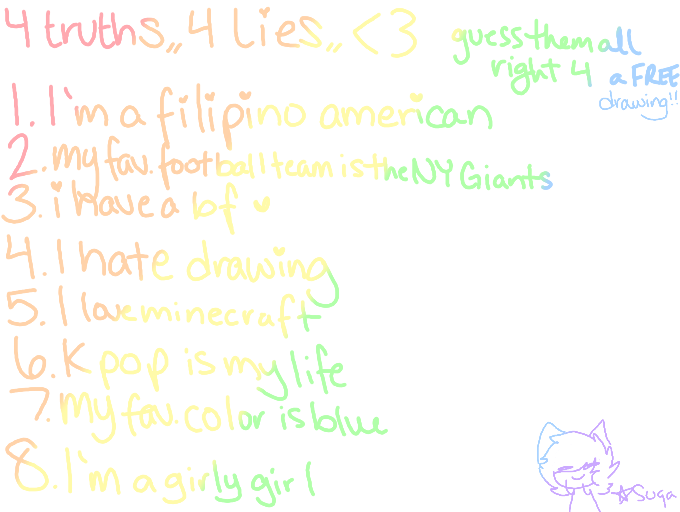 4 truths,, 4 lies,, <3
guess them all
right 4 a FREE
drawing!!
1. I'm a filipino american
2. my fav. football team is the NY Giants
3. i have a bf
4. I hate drawing
5. I love minecraft
6. K pop is my life
7. My fav. color is blue
8. I'm a girly girl
☆Suga